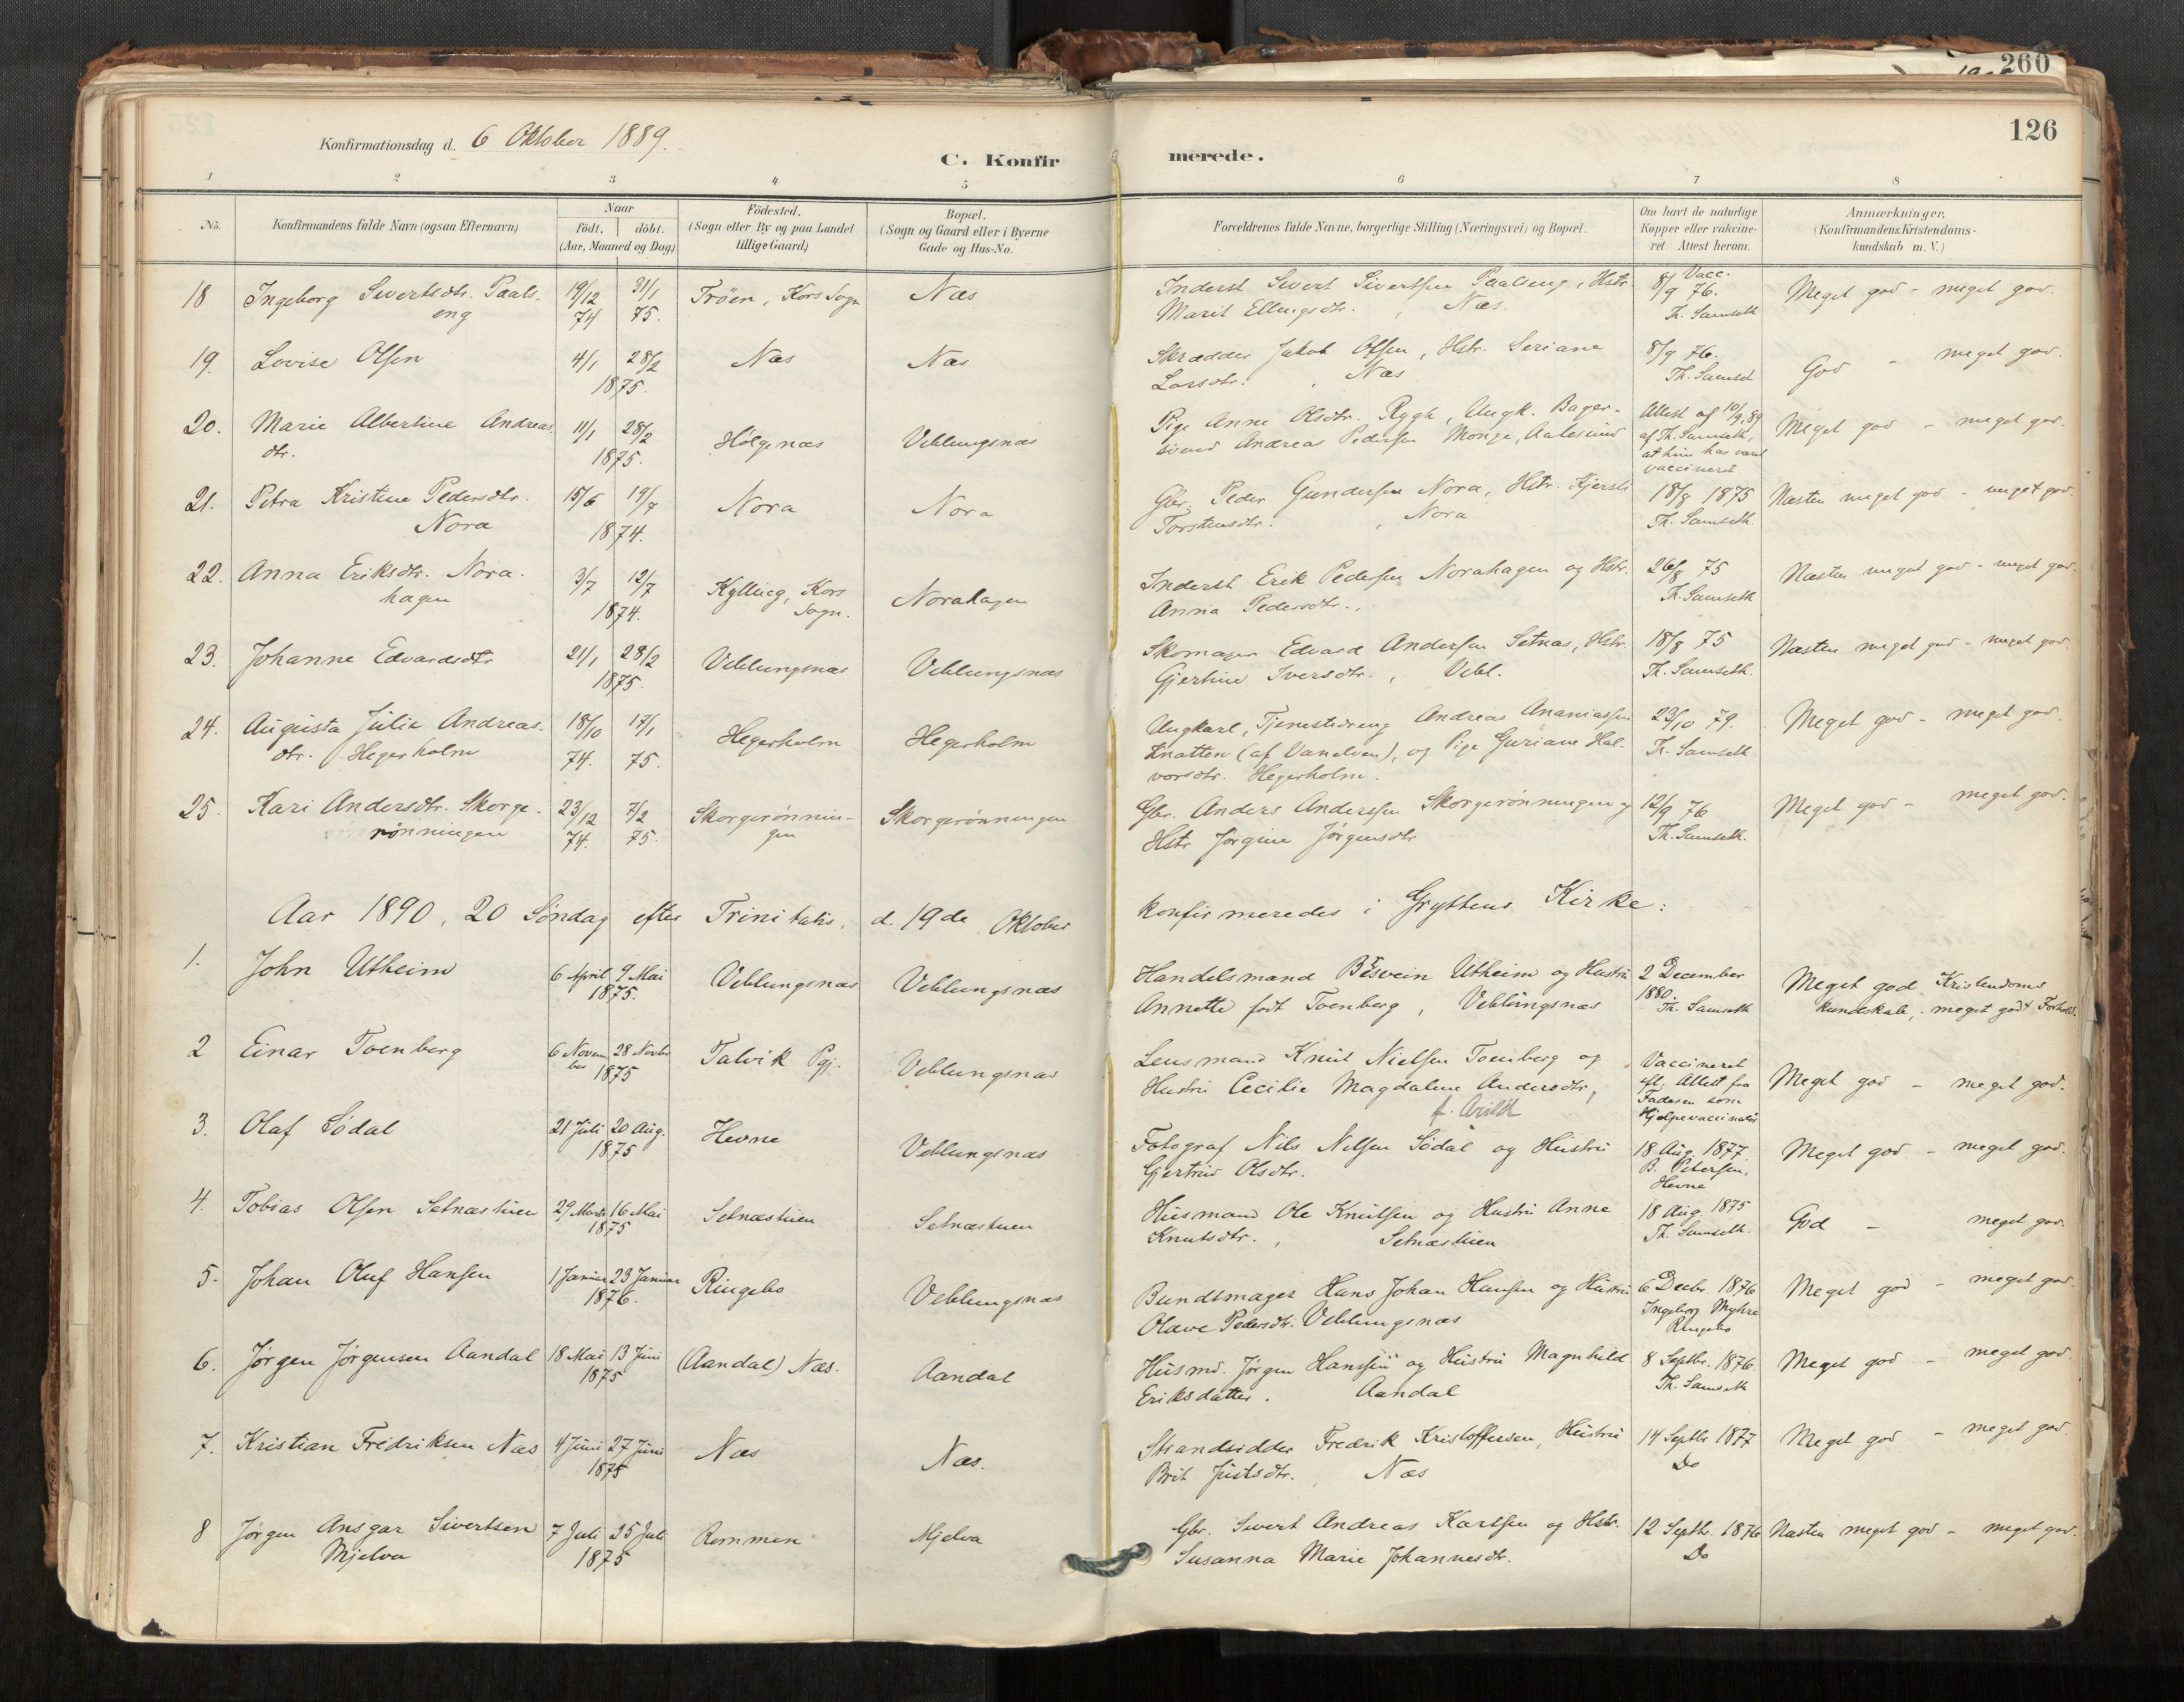 260
126
Konfirmationsdag d. 6 Oktober 1889.
C. Konfirmerede.
1 2 3 4 5 6 7 8
No.
Konfirmandens fulde Navn (ogsaa Efternavn)
Naar
födt. döbt.
(Aar, Maaned og Dag)
Födested.
(Sogn eller By og paa Landet
tillige Gaard)
Bopæl.
(Sogn og Gaard eller i Byerne
Gade og Hus-No.
Forældrenes fulde Navne, borgerlige Stilling (Næringsvei) og Bopæl.
Om havt de naturlige
Kopper eller vakcine-
ret. Attest herom.
Anmærkninger.
(Konfirmandens Kristendoms-
kundskab m. V.)
18 Ingeborg Sivertsdtr. Paals- 19/12 31/1 Tröen, Kors Sogn Næs Inderst Sivert Sivertsen Paaleng, Hstr. 8/9 Vacc. 76. Meget god - meget god.
eng 74 75. Marit Ellingsdtr. , Næs. Th. Samseth
19. Lovise Olsen 4/1 28/2 Næs Næs Skrædder Jakob Olsen, Hstr. Seriane 8/9 76. God - meget god.
1875. Larsdtr. , Næs Th. Samset
20. Marie Albertine Andreas 11/1 28/2 Holgenæs Veblungsnæs Pige Anne Olsdtr. Rygh, Ungk. Bager- Attest af 10/9, 89 Meget god - meget god.
dtr. 1875. svend Andreas Pedersen Monge, Aalesund af Th. Samseth,
at hun har været
vaccineret
21. Petra Kristine Pedersdtr. 15/6 19/7 Nora Nora Gbr. Peder Gundersen Nora, Hstr. Kjersti 18/8 1875 Næsten meget god - meget god.
Nora 1874. Torstensdtr. , Nora Th. Samseth.
22. Anna Eriksdtr. Nora- 3/7 12/7 Kylling, Kors Norahagen Inderst Erik Pedersen Norahagen og Hstr. 26/8 75 Næsten meget god - meget god.
hagen 1874. Sogn. Anna Pedersdtr. , Th. Samseth
23. Johanne Edvardsdtr 21/1 28/2 Veblungsnæs Veblungsnæs Skomager Edvard Andersen Setnæs, Hstr. 18/8 75 Næsten meget god - meget god.
1875. Gjertine Iversdtr. , Vebl. Th. Samseth.
24. Augusta Julie Andreas- 18/10 17/1 Hegerholm Hegerholm Ungkarl, Tjenestedreng Andreas Ananiassen 23/10 79. Meget god - meget god.
dtr. Hegerholm 74. 75. Knatten (af Vanelven), og Pige Guriane Hal- Th. Samseth
vorsdtr. Hegerholm.
25. Kari Andersdtr. Skorge- 23/12 7/2 Skorgerönnin- Skorgerönningen Gbr. Anders Anderssen Skorgerönningen og 12/9 76 Meget god - meget god.
rönningen 74. 75. gen Hstr Jörgine Jörgensdtr Th. Samseth.
Aar 1890, 20 Söndag efter Trinitatis, d. 19de Oktober konfirmeredes i Gryttens Kirke:
1. John Utheim 6 April 9 Mai Veblungsnæs Veblungsnæs Handelsmand Utheim og Hustru 2 December Meget god Kristendoms
1875. Annette født Toenberg , Veblungsnæs 1880. Th. Samseth kundskab, meget godt Forhold.
2 Einar Toenberg 6 Novem 28 Novbr Talvik Pgj. Veblungsnæs Lensmand Knut Nielsen Toenberg og Vaccineret Meget god - meget god.
ber 1875 Hustru Cecilie Magdalene Andersdtr, eft. Attest fra
f. Arildt Faderen som
Hjelpevaccinatör
3. Olaf Södal 21 Juli 20 Aug. Hevne Veblungsnæs Fotograf Nils Nilsen Södal og Hustru 18 Aug. 1877. Meget god - meget god.
1875 Gjertrud Olsdtr. B. Petersen,
Hevne
4. Tobias Olsen Setnæstuen 29 Marts 16 Mai Setnæstuen Setnæstuen Husmand Ole Knutsen og Hustru Anne 18 Aug. 1875 God - meget god.
1875 Knutsdtr. , Setnæstuen Th. Samseth.
5. Johan Oluf Hansen 1 Januar 23 Januar Ringebo Veblungsnæs Bundtmager Hans Johan Hansen og Hustru 6 Decbr. 1876 Meget god - meget god.
1876. Olave Pedersdtr. Veblungsnæs Ingeborg Myhre
Ringebo
6. Jörgen Jörgensen Aandal 18 Mai 13 Juni (Aandal) Næs. Aandal Husmd. Jörgen Hanssen og Hustru Magnhild 8 Septbr. 1876. Meget god - meget god.
1875 Eriksdatter. Aandal Th. Samseth
7. Kristian Fredriksen Næs 4 Juni 27 Juni Næs Næs. Strandsidder Fredrik Kristoffersen, Hustru 14 Septbr 1877 Meget god - meget god.
1875 Brit Justsdtr. , Næs Do
8 Jörgen Ansgar Sivertsen 7 Juli 25 Juli Rommen Mjelva Gbr. Sivert Andreas Karlsen og Hstr. 12 Septbr. 1876 Næsten meget god - meget god.
Mjelva 1875 Susanna Marie Johannesdtr. Do